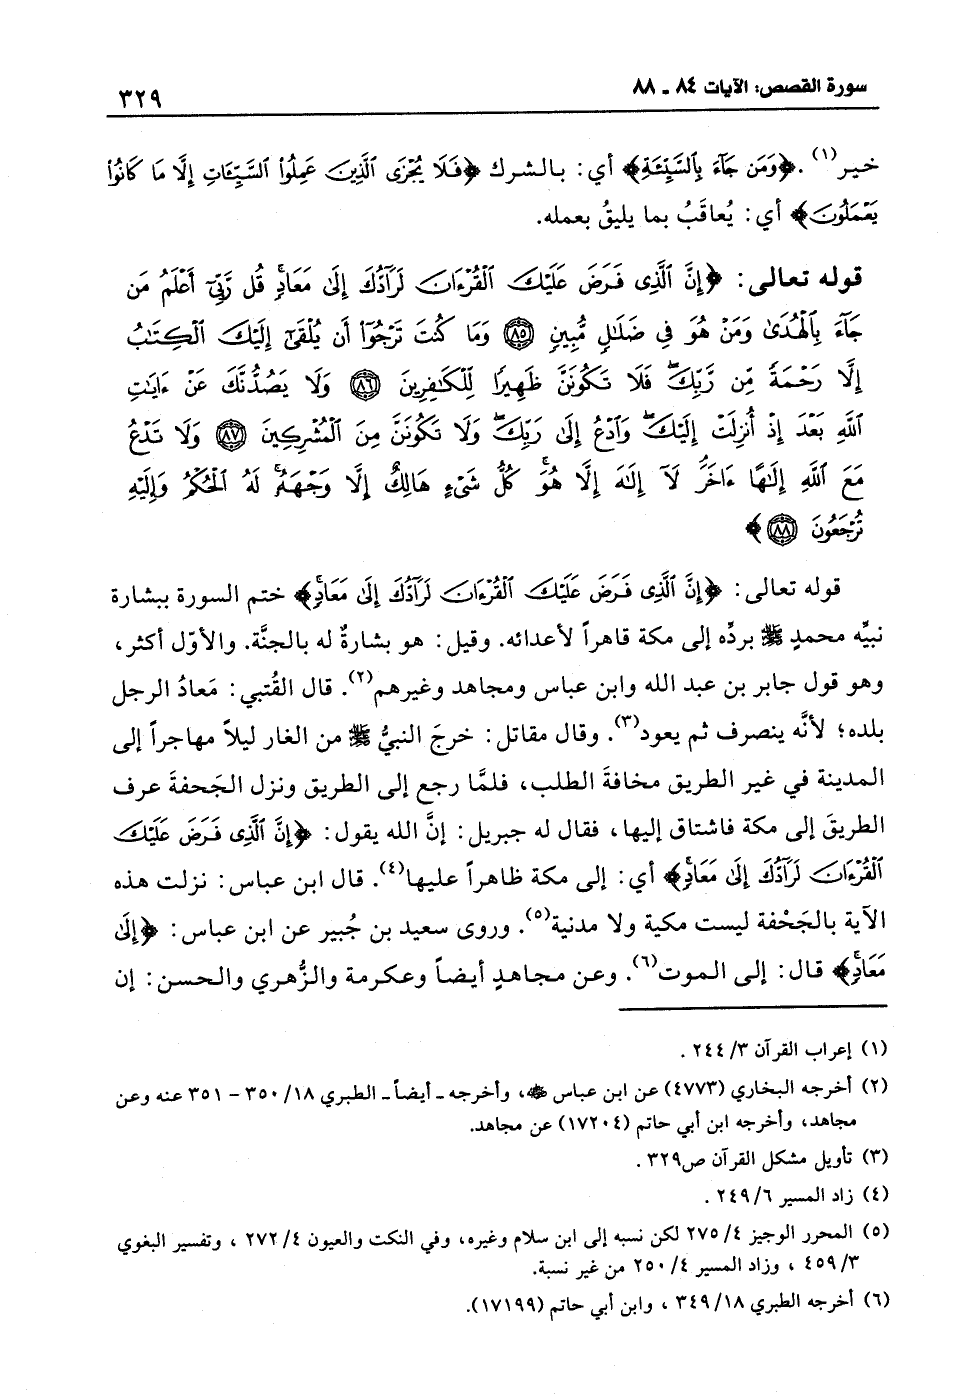 سورة القصص: الآيات ٨٤ ـ ٨٨
٣٢٩
خير(١). ﴿وَمَن جَآءَ بِٱلسَّيِّئَةِ﴾ أي: بالشرك ﴿فَلَا يُجْزَى ٱلَّذِينَ عَمِلُوا۟ ٱلسَّيِّـَٔاتِ إِلَّا مَا كَانُوا۟
يَعْمَلُونَ﴾ أي: يُعاقَبُ بما يليقُ بعمله.
قوله تعالى: ﴿إِنَّ ٱلَّذِى فَرَضَ عَلَيْكَ ٱلْقُرْءَانَ لَرَآدُّكَ إِلَىٰ مَعَادٍۢ ۚ قُل رَّبِّىٓ أَعْلَمُ مَن
جَآءَ بِٱلْهُدَىٰ وَمَنْ هُوَ فِى ضَلَـٰلٍۢ مُّبِينٍۢ ٨٥ وَمَا كُنتَ تَرْجُوٓا۟ أَن يُلْقَىٰٓ إِلَيْكَ ٱلْكِتَـٰبُ
إِلَّا رَحْمَةًۭ مِّن رَّبِّكَ ۖ فَلَا تَكُونَنَّ ظَهِيرًۭا لِّلْكَـٰفِرِينَ ٨٦ وَلَا يَصُدُّنَّكَ عَنْ ءَايَـٰتِ
ٱللَّهِ بَعْدَ إِذْ أُنزِلَتْ إِلَيْكَ ۖ وَٱدْعُ إِلَىٰ رَبِّكَ ۖ وَلَا تَكُونَنَّ مِنَ ٱلْمُشْرِكِينَ ٨٧ وَلَا تَدْعُ
مَعَ ٱللَّهِ إِلَـٰهًا ءَاخَرَ ۘ لَآ إِلَـٰهَ إِلَّا هُوَ ۚ كُلُّ شَىْءٍ هَالِكٌ إِلَّا وَجْهَهُۥ ۚ لَهُ ٱلْحُكْمُ وَإِلَيْهِ
تُرْجَعُونَ ٨٨﴾
قوله تعالى: ﴿إِنَّ ٱلَّذِى فَرَضَ عَلَيْكَ ٱلْقُرْءَانَ لَرَآدُّكَ إِلَىٰ مَعَادٍۢ﴾ ختم السورة ببشارة
نبيِّه محمدٍ ﷺ بردِّه إلى مكة قاهراً لأعدائه. وقيل: هو بشارةٌ له بالجنَّة. والأوّل أكثر،
وهو قول جابر بن عبد الله وابن عباس ومجاهد وغيرهم(٢). قال القُتبي: مَعادُ الرجل
بلده؛ لأنَّه ينصرف ثم يعود(٣). وقال مقاتل: خرجَ النبيُّ ﷺ من الغار ليلاً مهاجراً إلى
المدينة في غير الطريق مخافةَ الطلب، فلمَّا رجع إلى الطريق ونزل الجَحفةَ عرف
الطريقَ إلى مكة فاشتاق إليها، فقال له جبريل: إنَّ الله يقول: ﴿إِنَّ ٱلَّذِى فَرَضَ عَلَيْكَ
ٱلْقُرْءَانَ لَرَآدُّكَ إِلَىٰ مَعَادٍۢ﴾ أي: إلى مكة ظاهراً عليها(٤). قال ابن عباس: نزلت هذه
الآية بالجَحْفة ليست مكية ولا مدنية(٥). وروى سعيد بن جُبير عن ابن عباس: ﴿إِلَىٰ
مَعَادٍۢ﴾ قال: إلى الموت(٦). وعن مجاهدٍ أيضاً وعكرمة والزُّهري والحسن: إن
(١) إعراب القرآن ٣/ ٢٤٤ .
(٢) أخرجه البخاري (٤٧٧٣) عن ابن عباس ﷺ، وأخرجه ـ أيضاً ـ الطبري ١٨/ ٣٥٠ – ٣٥١ عنه وعن
مجاهد، وأخرجه ابن أبي حاتم (١٧٢٠٤) عن مجاهد.
(٣) تأويل مشكل القرآن ص٣٢٩ .
(٤) زاد المسير ٦/ ٢٤٩ .
(٥) المحرر الوجيز ٤/ ٢٧٥ لكن نسبه إلى ابن سلام وغيره، وفي النكت والعيون ٤/ ٢٧٢ ، وتفسير البغوي
٣/ ٤٥٩ ، وزاد المسير ٤/ ٢٥٠ من غير نسبة.
(٦) أخرجه الطبري ١٨/ ٣٤٩ ، وابن أبي حاتم (١٧١٩٩).